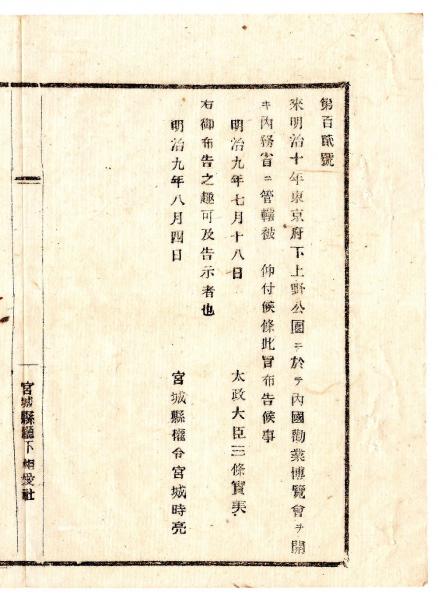 第百貳號
來明治十年東京府下上野公園ニ於テ內國勸業博覽會ヲ開
キ內務省ニ管轄被 仰付候條此旨布告候事
明治九年七月十八日 太政大臣三條實美
右御布告之趣可及告示者也
明治九年八月四日 宮城縣權令宮城時亮
宮城縣廳下 相愛社